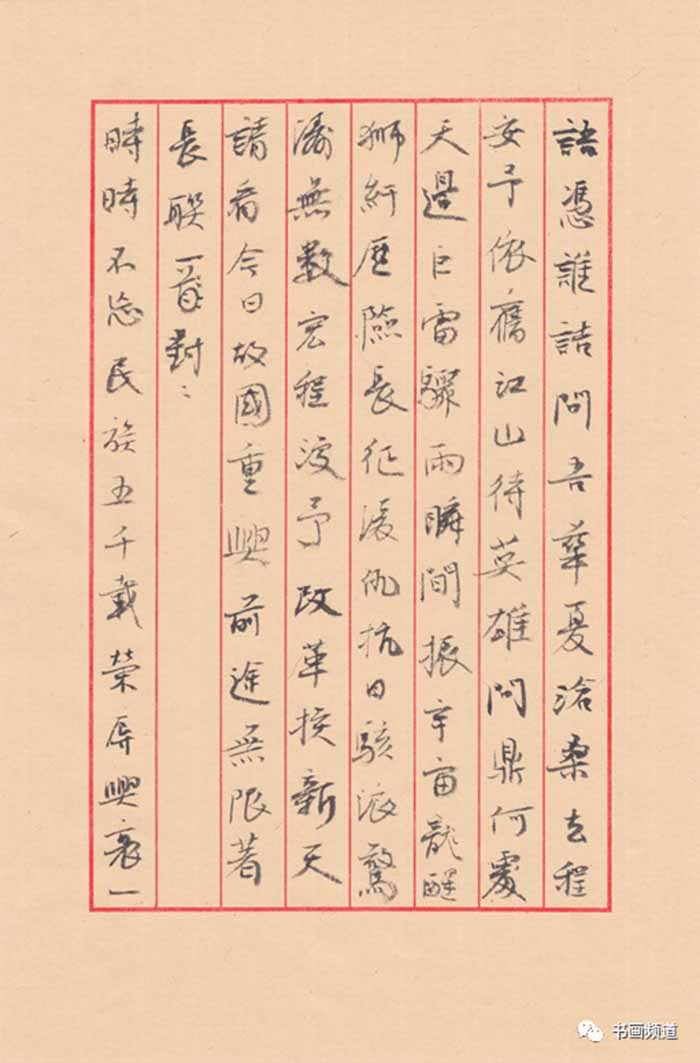 語憑誰詰問吾華夏滄桑去程
安予依舊江山待英雄問鼎何處
天邊巨雷驟雨瞬間振宇宙龍醒
獅紆歷險長征濺仇抗日駭浪驚
濤無數宏程沒予改革換新天
請看今日故國重興前途無限著
長聯一首對:
時時不忘民族五千載榮辱興衰一
书画频道